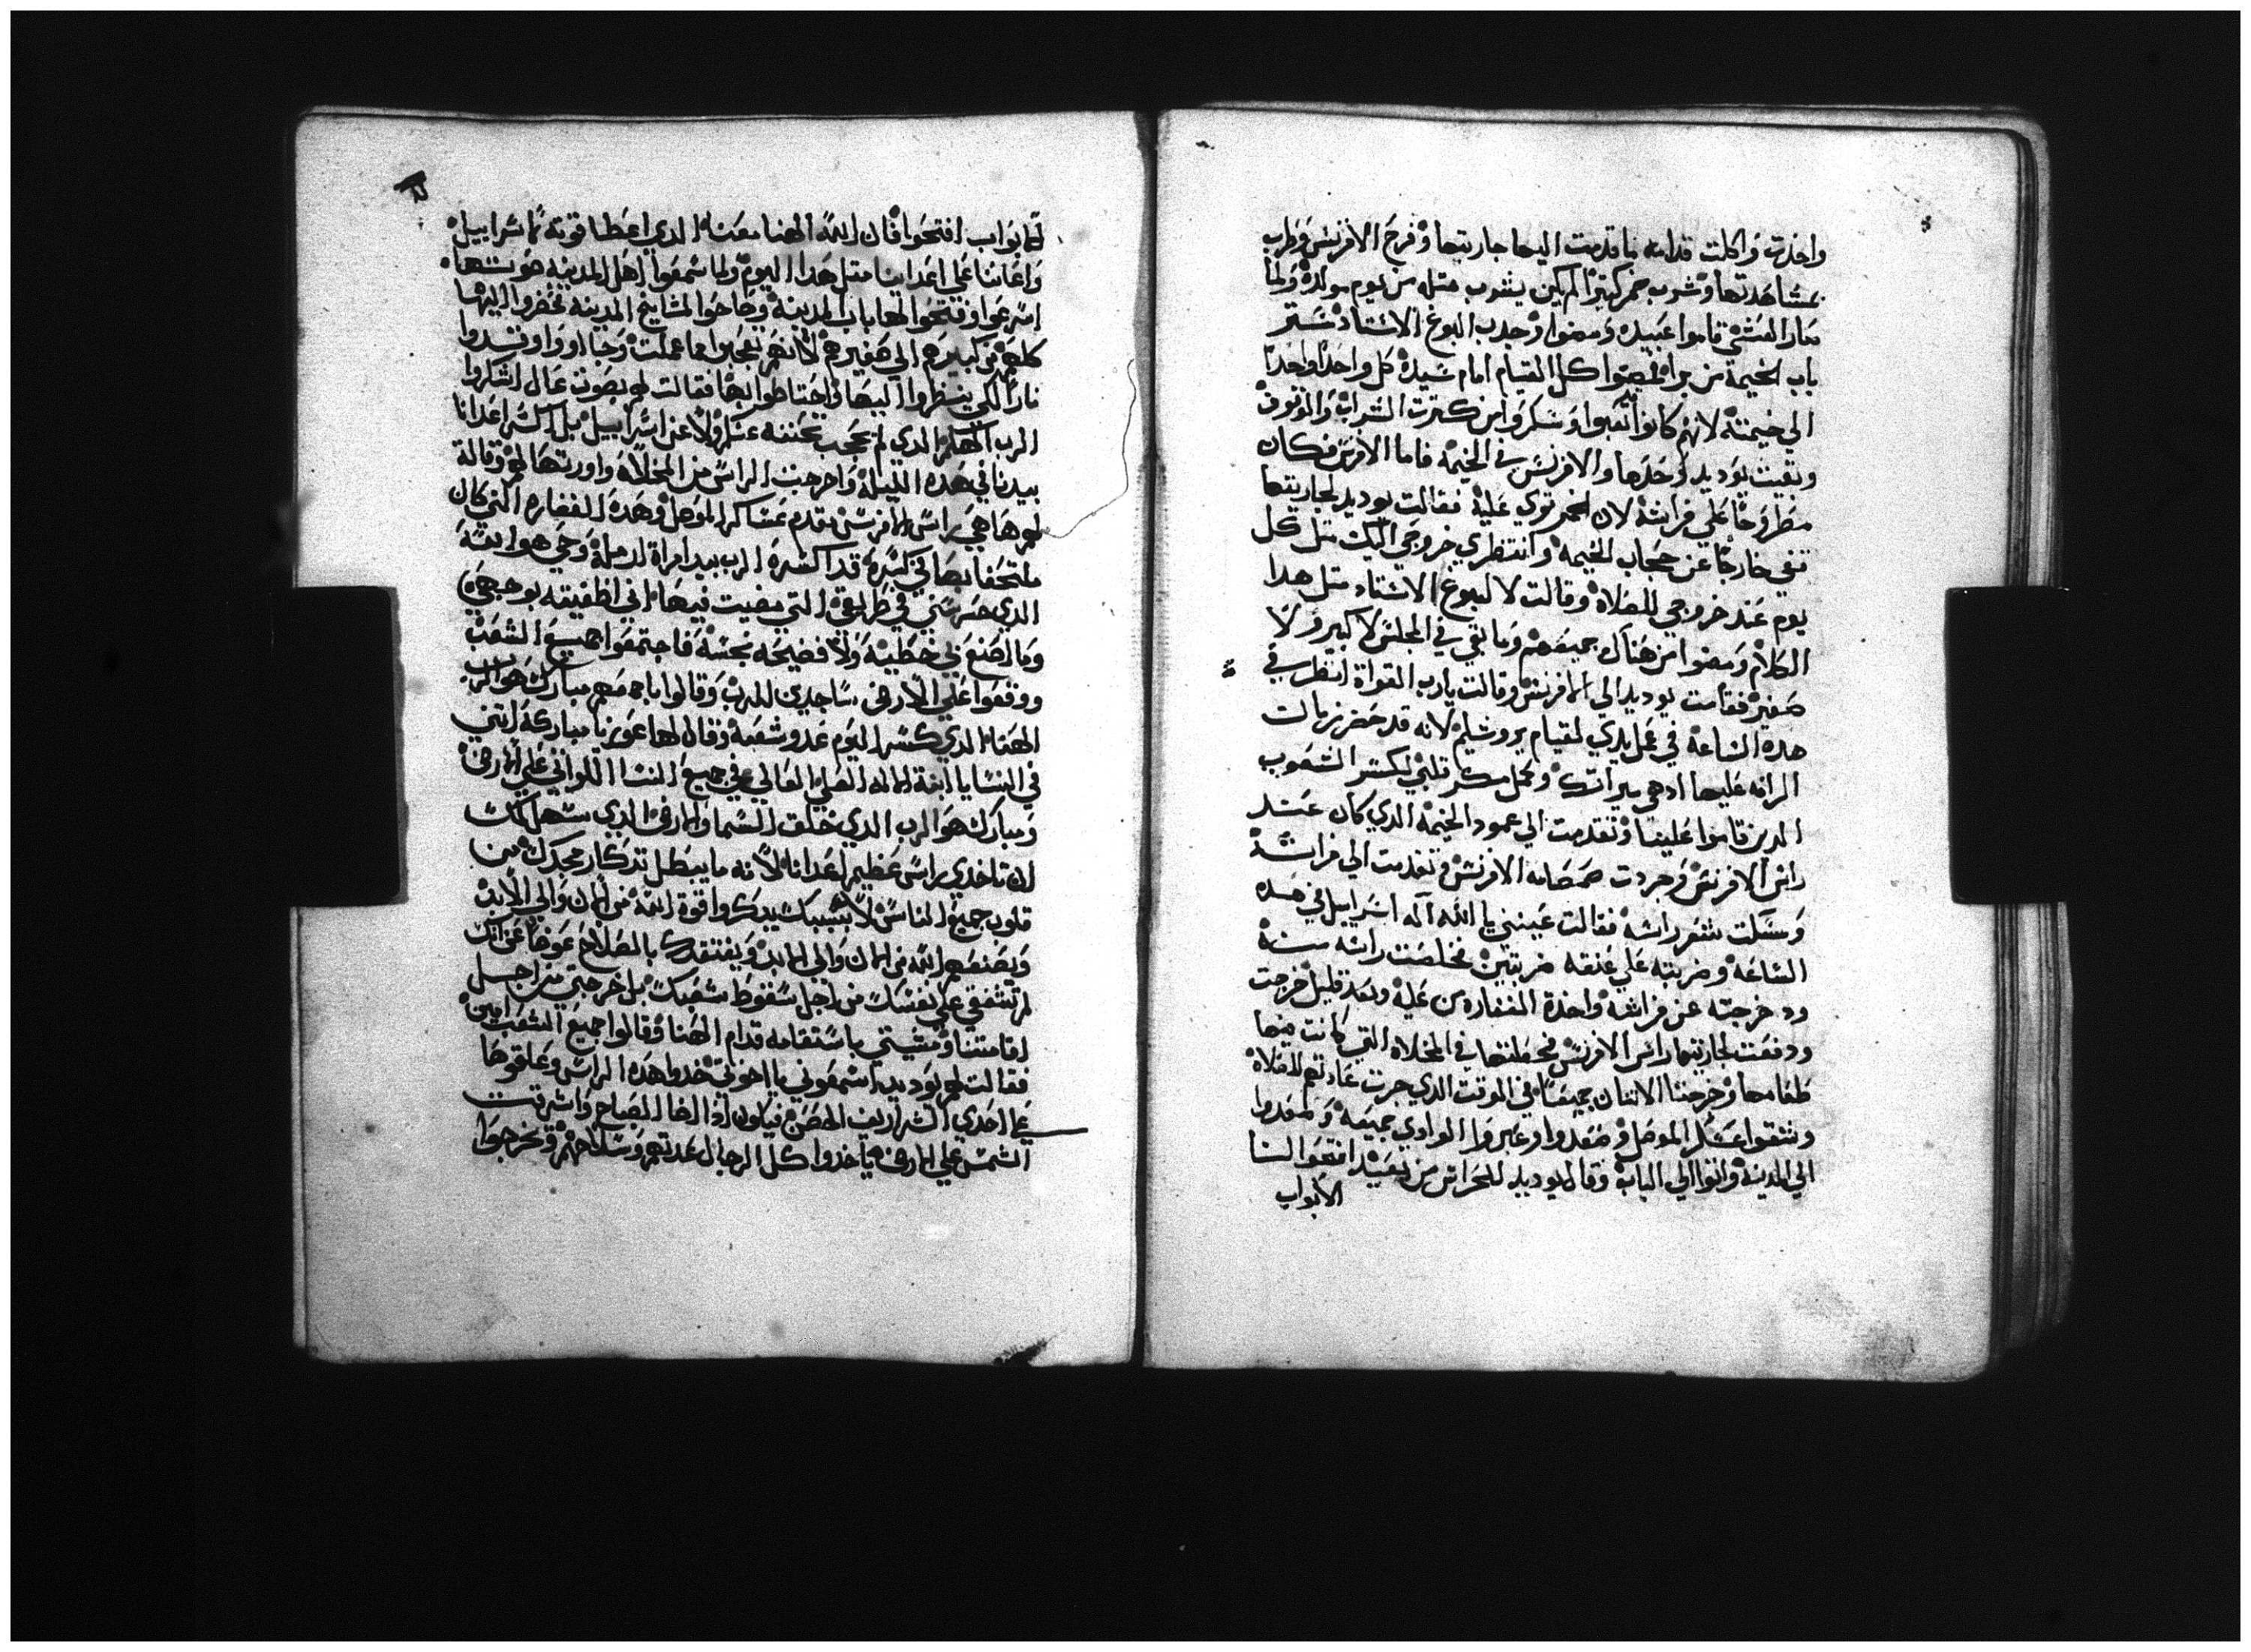 واخذت واكلت قدامه ما قدمت اليها جاريتها وفرح الافرنس وطرب
بمشاهدتها وشرب خمر كتير الم يكن يشرب متله من يوم مولده ولما
صار العشي قاموا عبيده ومضوا وجدب البوغ الاستاد ستر
باب الخيمة من برا ليمضوا كل القيام امام سيده كل واحدا واحدا
الي خيمته لانهم كانوا تعبوا وسكروا من كترت الشراب والوقوف
وبقيت يوديد وحدها والافرنس في الخيمة فاما الافرنس فكان
مطروحا علي فراشة لان الخمر قوي علية فقالت يوديد لجاريتها
تقفي خارجا عن حجاب الخيمة وانتظري خروجي اليك متل كل
يوم عند خروجي للصلاة وقالت لالبوغ الاستاد متل هدا
الكلام ومضوا من هناك جميعهم وما بقي في المجلس لا كبير ولا
صغير فقامت يوديد الي الافرنس وقالت يارب القواة انظر في
هده الساعة في عمل يدي لقيام يروشليم لانه قد حضر زمانت
الرافه عليها ادهي ميراتك وعمل مكر قلبي لكسر الشعوب
الدين قاموا علينا وتقدمت الي عمود الخيمة الدي كان عند
راس الافرنس وجردت صمصامه الافرنس وتقدمت الي فراشة
ومسكت شعر راسة فقالت عينني يا الله اله اسراييل في هده
الساعة وضربته علي عنقه ضربتين فخلصت راسه منه
ودحرجته عن فراشه واخدة الغفاره من علية وبعد قليل خرجت
ودفعت لجاريتها راس الافرنس فجعلتها في المخلاه التي كانت فيها
طعامها وخرجتا الاتنان جميعا في الوقت الدي جرت عادتهم للصلاة
وشقوا عسكر الموصل وصعدوا وعبروا الوادي جميعه وصعدوا
الي المدينة واتوا الي الباب وقال يوديد للحراس من بعيد افتحوا لنا
الابواب
الابواب افتحوا فان الله الهنا معنا الدي اعطا قوته لاسراييل
واعاننا علي اعداينا متل هدا اليوم ولما سمعوا اهل المدينة صوتها
اسرعوا وفتحوا لها باب المدينة وصاحوا لمشايخ المدينة فحضروا اليها
كلهم من كبيرهم الي صغيرهم لانهم تعجبوا مما عملت وجاوا واوقدوا
نارا لكي ينظروا اليها واحتاطوا بها فقالت لهم بصوت عال اشكروا
الرب الهكم الدي لم يحجب تحننه عنكم ولا عن اسراييل بل كسر اعدانا
بيدنا في هده الليلة واخرجت الراس من المخلاه واورتها لهم وقالة
لهم ها هي راس الافرنس مقدم عساكر الموصل وهده الغفاره التي كان
ملتحفا بها في كبره قد كسره الرب بيد امراة ارملة وحي هو الله
الدي حرسني في طريقي التي مضيت فيها اني اطغيته بوجهي
وما صنع بي خطية ولا فضيحة نجسة فاجتمعوا جميع الشعب
ووقعوا علي الارض ساجدين للرب وقالوا باجمعهم مبارك هو الرب
الهنا الدي كسر اليوم عدو شعبه وقال لها عوزيا مباركة انتي
في النسا يا ابنة الاله العلي العالي في جميع النسا اللواتي علي الارض
ومبارك هو الرب الدي خلق السما والارض الدي سهل لك
ان تاخدي براس عظيم اعدانا لانه ما يبطل تدكار مجدك من
قلوب جميع الناس لان بسببك يدكروا قوة الله من الان والي الابد
ويصنعهم الله من الان والي الابد ويفتقدك بالصلاح عوضا عن انك
لم تشفقي علي نفسك من اجل سقوط شعبك بل خرجتي من اجل
اقامتنا ومشيتي باستقامه قدام الهنا فقالوا جميع الشعب امين
فقالت لهم يوديد اسمعوني يا اخوتي خدوا هده الراس وعلقوها
علي احدي الشراريف الحصن فيكون ادا اضا الصباح واشرقت
الشمس علي الارض ياخدوا كل الرجال عدتهم وسلاحهم وتخرجوا